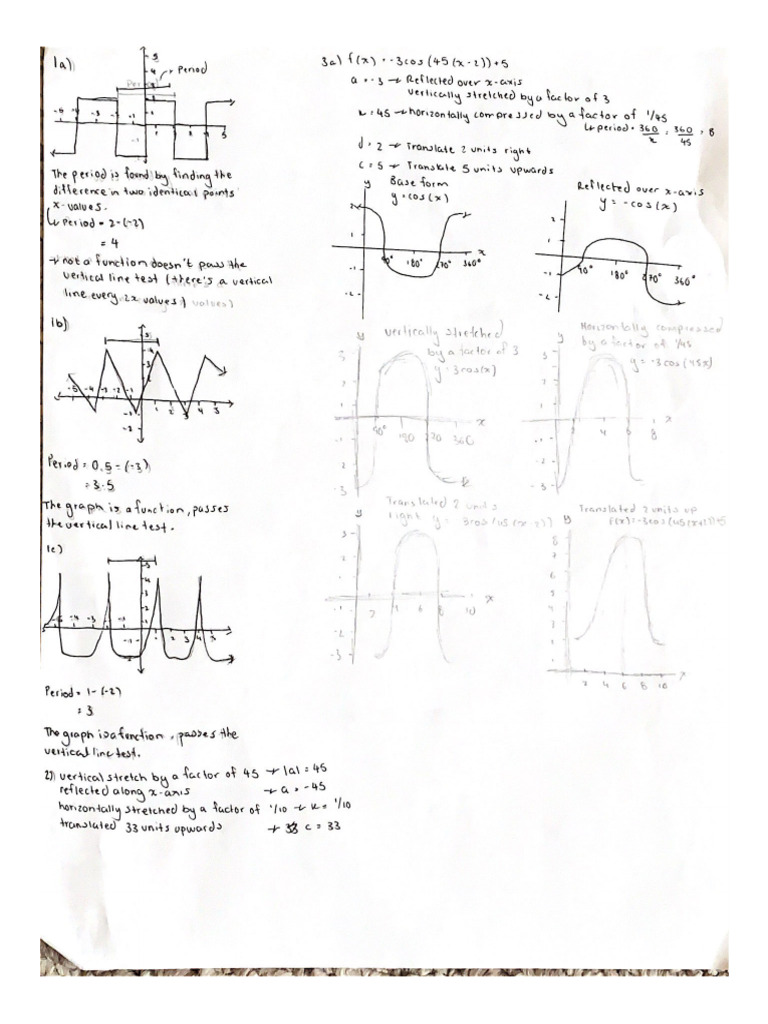 1a)
Period
The period is found by finding the
difference in two identical points
x-values.
↳ Period = 2-(-2)
= 4
→ not a function doesn't pass the
vertical line test (there's a vertical
line every 2x values)
1b)
Period = 0.5 - (-3)
= 3.5
The graph is a function, passes
the vertical line test.
1c)
Period = 1-(-2)
= 3
The graph is a function, passes the
vertical line test.
2) vertical stretch by a factor of 45 → |a| = 45
reflected along x-axis → a = -45
horizontally stretched by a factor of 1/10 → k = 1/10
translated 33 units upwards → c = 33
3a) f(x) = -3cos(45(x-2))+5
a = -3 → Reflected over x-axis
vertically stretched by a factor of 3
k = 45 → horizontally compressed by a factor of 1/45
↳ period = 360/k = 360/45 = 8
d = 2 → Translate 2 units right
c = 5 → Translate 5 units upwards
Base form
y = cos(x)
y
2
1
-1
-2
90° 180° 270° 360°
x
Reflected over x-axis
y = -cos(x)
2
1
-1
-2
90° 180° 270° 360°
Vertically stretched
by a factor of 3
y = -3cos(x)
y
x
Horizontally compressed
by a factor of 1/45
y = -3cos(45x)
y
x
2 4 6 8
Translated 2 units
right
y
x
Translated 2 units up
y
2 4 6 8 10